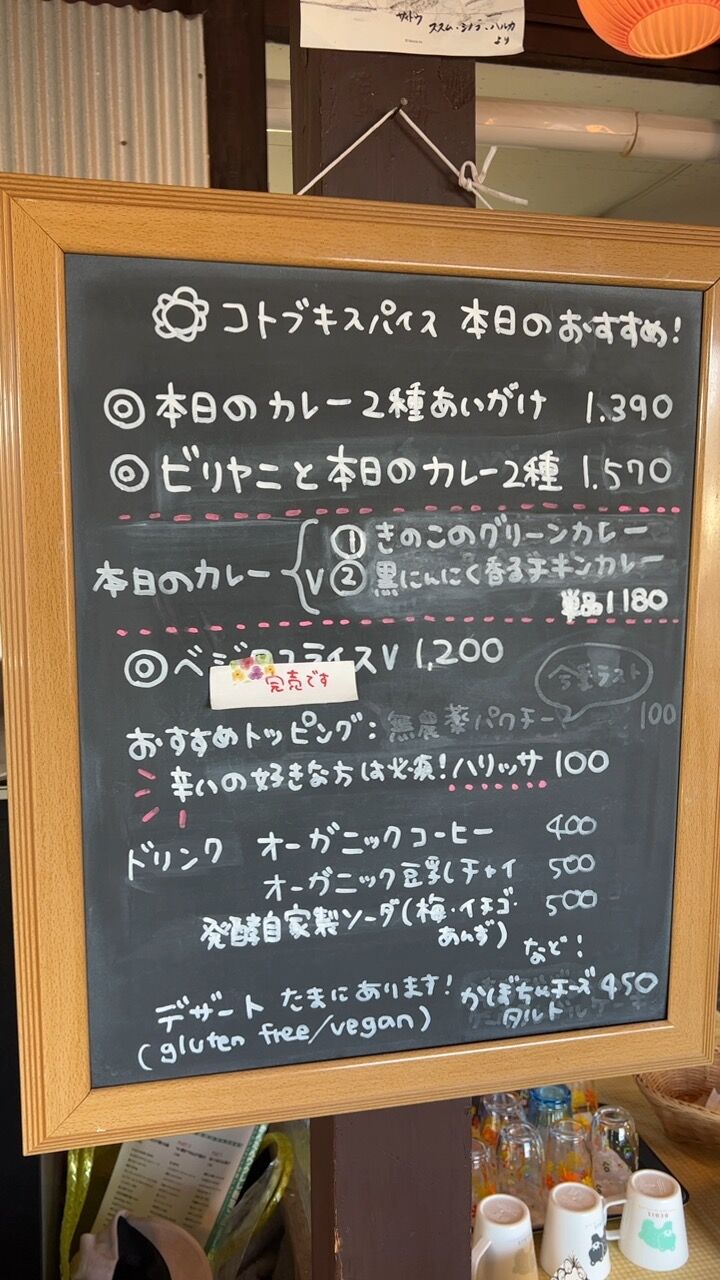 サイトウ
ススム・シノブ・ハルカ
より
コトブキスパイス 本日のおすすめ!
◎本日のカレー2種あいがけ 1.390
◎ビリヤニと本日のカレー2種 1.570
本日のカレー
①きのこのグリーンカレー
V②黒にんにく香るチキンカレー
単品1180
◎ベジ ライスV 1,200
完売です
おすすめトッピング: 無農薬パクチー 100
今季ラスト
辛いの好きな方は必須!ハリッサ 100
ドリンク オーガニックコーヒー 400
オーガニック豆乳チャイ 500
発酵自家製ソーダ(梅・イチゴ・ 500
あんず)
など!
デザート たまにあります! かぼちゃチーズ 450
タルト
(gluten free/vegan)